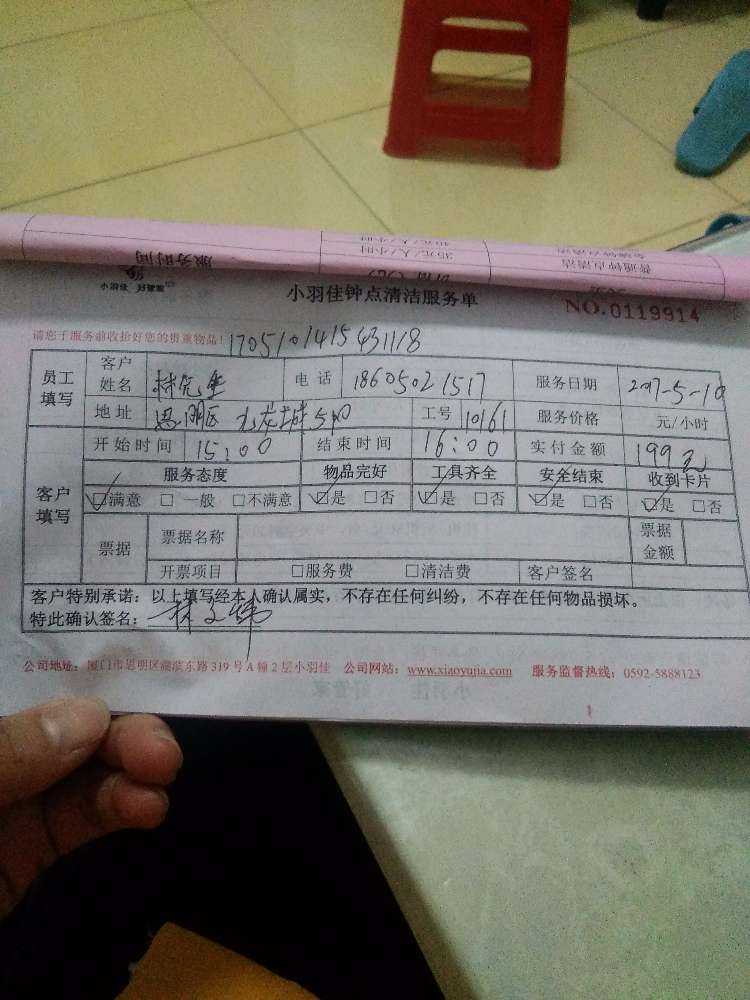 服务时间
35元/人/小时
40元/人/小时
普通钟点清洁
小羽佳 好管家
小羽佳钟点清洁服务单
NO.0119914
请您于服务前收拾好您的贵重物品！170510141543 1118
员工填写 客户姓名 林先生 电话 18605021517 服务日期 2017-5-10
地址 思明区 九龙城 工号 10161 服务价格 元/小时
客户填写 开始时间 15:00 结束时间 16:00 实付金额 199元
服务态度 物品完好 工具齐全 安全结束 收到卡片
☑满意 □一般 □不满意 ☑是 □否 ☑是 □否 ☑是 □否 ☑是 □否
票据 票据名称 票据金额
开票项目 □服务费 □清洁费 客户签名
客户特别承诺：以上填写经本人确认属实，不存在任何纠纷，不存在任何物品损坏。
特此确认签名：林文
公司地址：厦门市思明区湖滨东路319号A幢2层小羽佳 公司网站：www.xiaoyujia.com 服务监督热线：0592-5888123
1